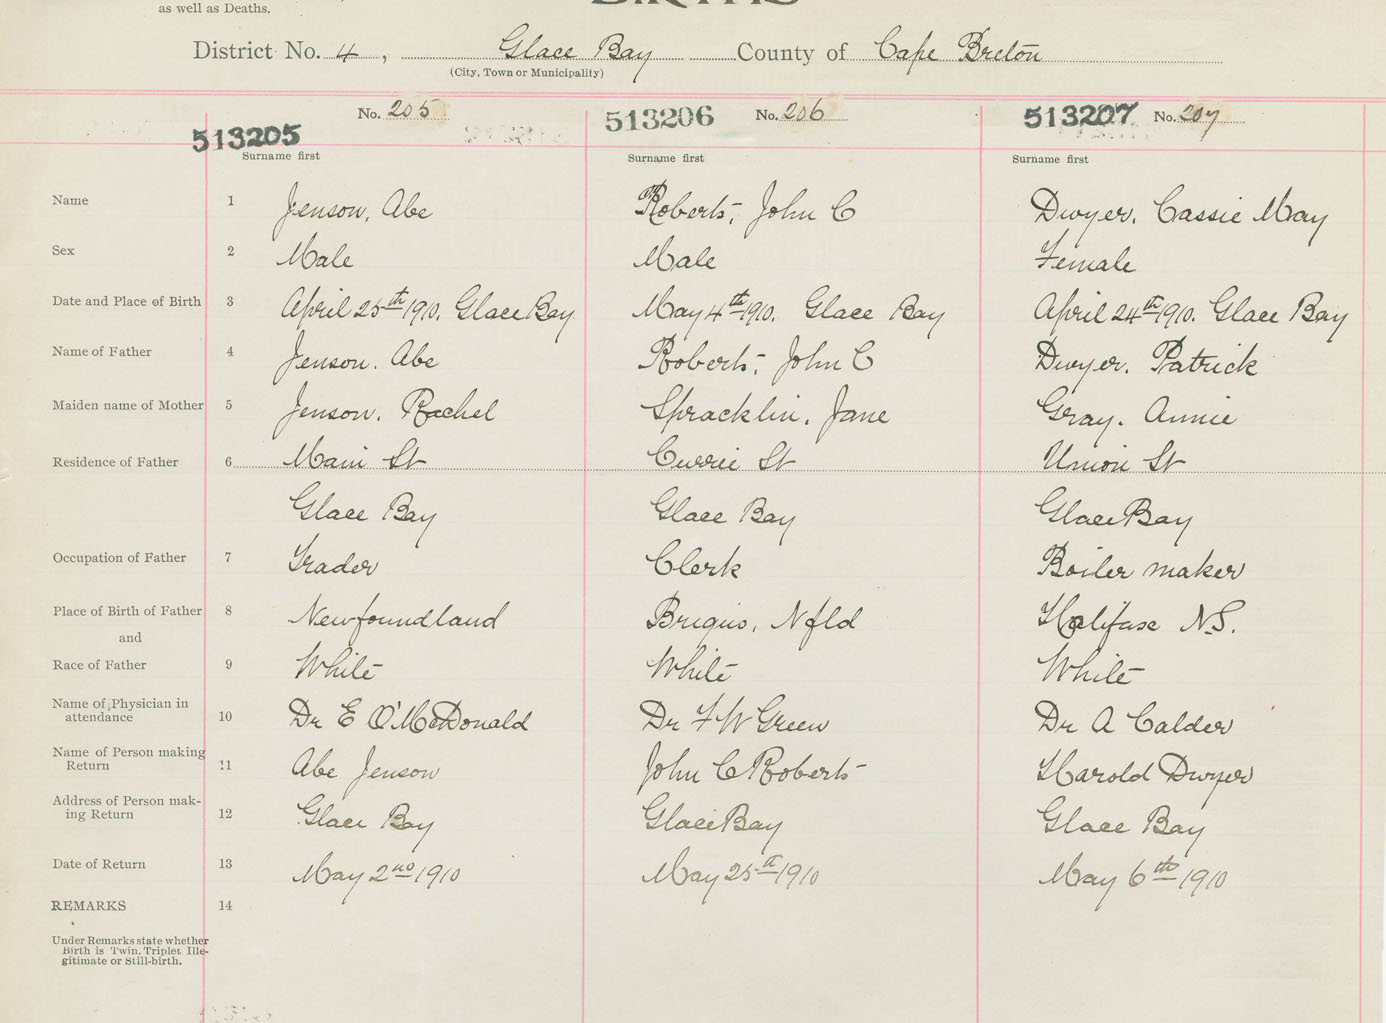 as well as Deaths.
BIRTHS
District No. 4, Glace Bay County of Cape Breton
(City, Town or Municipality)
No. 205 513206 No. 206 513207 No. 207
513205
Surname first Surname first Surname first
Name 1 Jenson, Abe Roberts, John C Dwyer, Cassie May
Sex 2 Male Male Female
Date and Place of Birth 3 April 25th 1910. Glace Bay May 4th 1910. Glace Bay April 24th 1910. Glace Bay
Name of Father 4 Jenson, Abe Roberts, John C Dwyer, Patrick
Maiden name of Mother 5 Jenson, Rachel Spracklin, Jane Gray, Annie
Residence of Father 6 Main St Currie St Union St
Glace Bay Glace Bay Glace Bay
Occupation of Father 7 Trader Clerk Boiler maker
Place of Birth of Father 8 Newfoundland Brigus, Nfld Halifax N.S.
and
Race of Father 9 White White White
Name of Physician in
attendance 10 Dr E O'McDonald Dr F W Green Dr A Calder
Name of Person making
Return 11 Abe Jenson John C Roberts Harold Dwyer
Address of Person mak-
ing Return 12 Glace Bay Glace Bay Glace Bay
Date of Return 13 May 2nd 1910 May 25th 1910 May 6th 1910
REMARKS 14
Under Remarks state whether
Birth is Twin, Triplet, Ille-
gitimate or Still-birth.